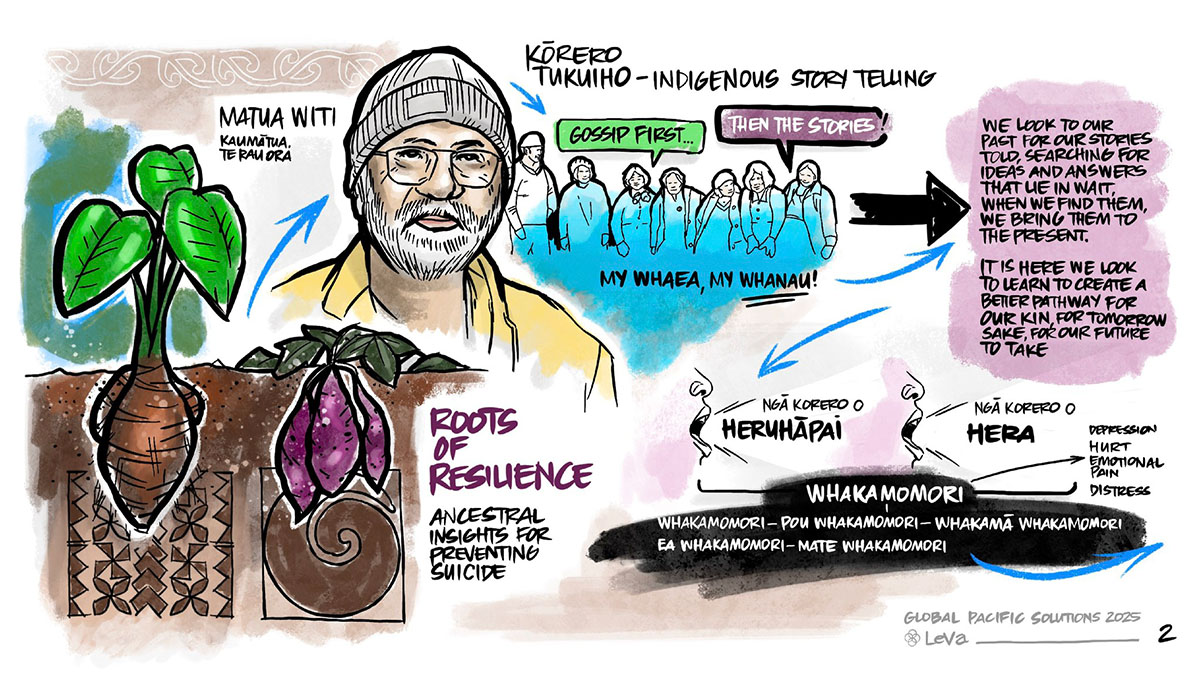 MATUA WITI
KAUMĀTUA,
TE RAU ORA
KŌRERO
TUKUIHO - INDIGENOUS STORY TELLING
GOSSIP FIRST...
THEN THE STORIES!
MY WHAEA, MY WHANAU!
WE LOOK TO OUR
PAST FOR OUR STORIES
TOLD, SEARCHING FOR
IDEAS AND ANSWERS
THAT LIE IN WAIT,
WHEN WE FIND THEM,
WE BRING THEM TO
THE PRESENT.
IT IS HERE WE LOOK
TO LEARN TO CREATE A
BETTER PATHWAY FOR
OUR KIN, FOR TOMORROW
SAKE, FOR OUR FUTURE
TO TAKE
ROOTS
OF
RESILIENCE
ANCESTRAL
INSIGHTS FOR
PREVENTING
SUICIDE
NGĀ KORERO O
HERUHĀPAI
NGĀ KORERO O
HERA
DEPRESSION
HURT
EMOTIONAL
PAIN
DISTRESS
WHAKAMOMORI
WHAKAMOMORI - POU WHAKAMOMORI - WHAKAMĀ WHAKAMOMORI
EA WHAKAMOMORI - MATE WHAKAMOMORI
GLOBAL PACIFIC SOLUTIONS 2025
LeVa
2